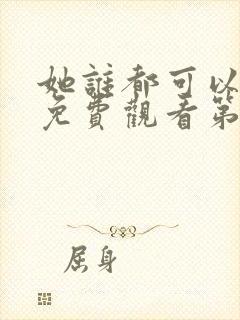 她誰都可以
免費觀看第
屈身